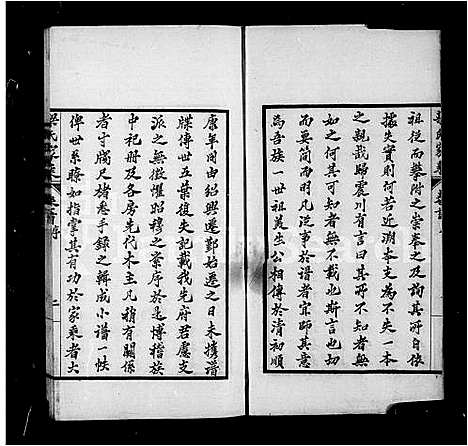 祖從而攀附之崇奉之及詢其所自依
據失實則何若近溯本支為不失一本
之親哉歸震川有言曰其所不知者無
如之何其可知者無不載也斯言也切
而要簡而明凡從事於譜者宜師其意
為吾族一世祖義生公相傳於清初順
康年間由紹興遷鄞始遷之日未攜譜
牒傳世五葉復失記載我先府君慮支
派之無徵懼昭穆之紊序於是博稽族
中祀冊及各房先代木主凡稍有關係
者寸牘尺楮悉手錄之輯成小譜一帙
俾世系瞭如指掌其有功於家乘者大
氏家乘
卷首 序
二